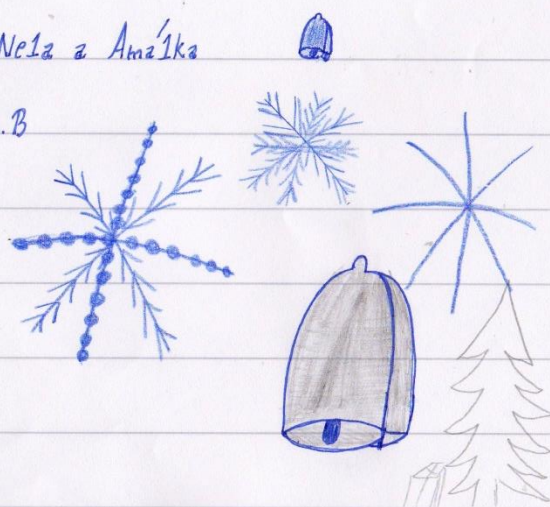 Nela a Amálka
.B